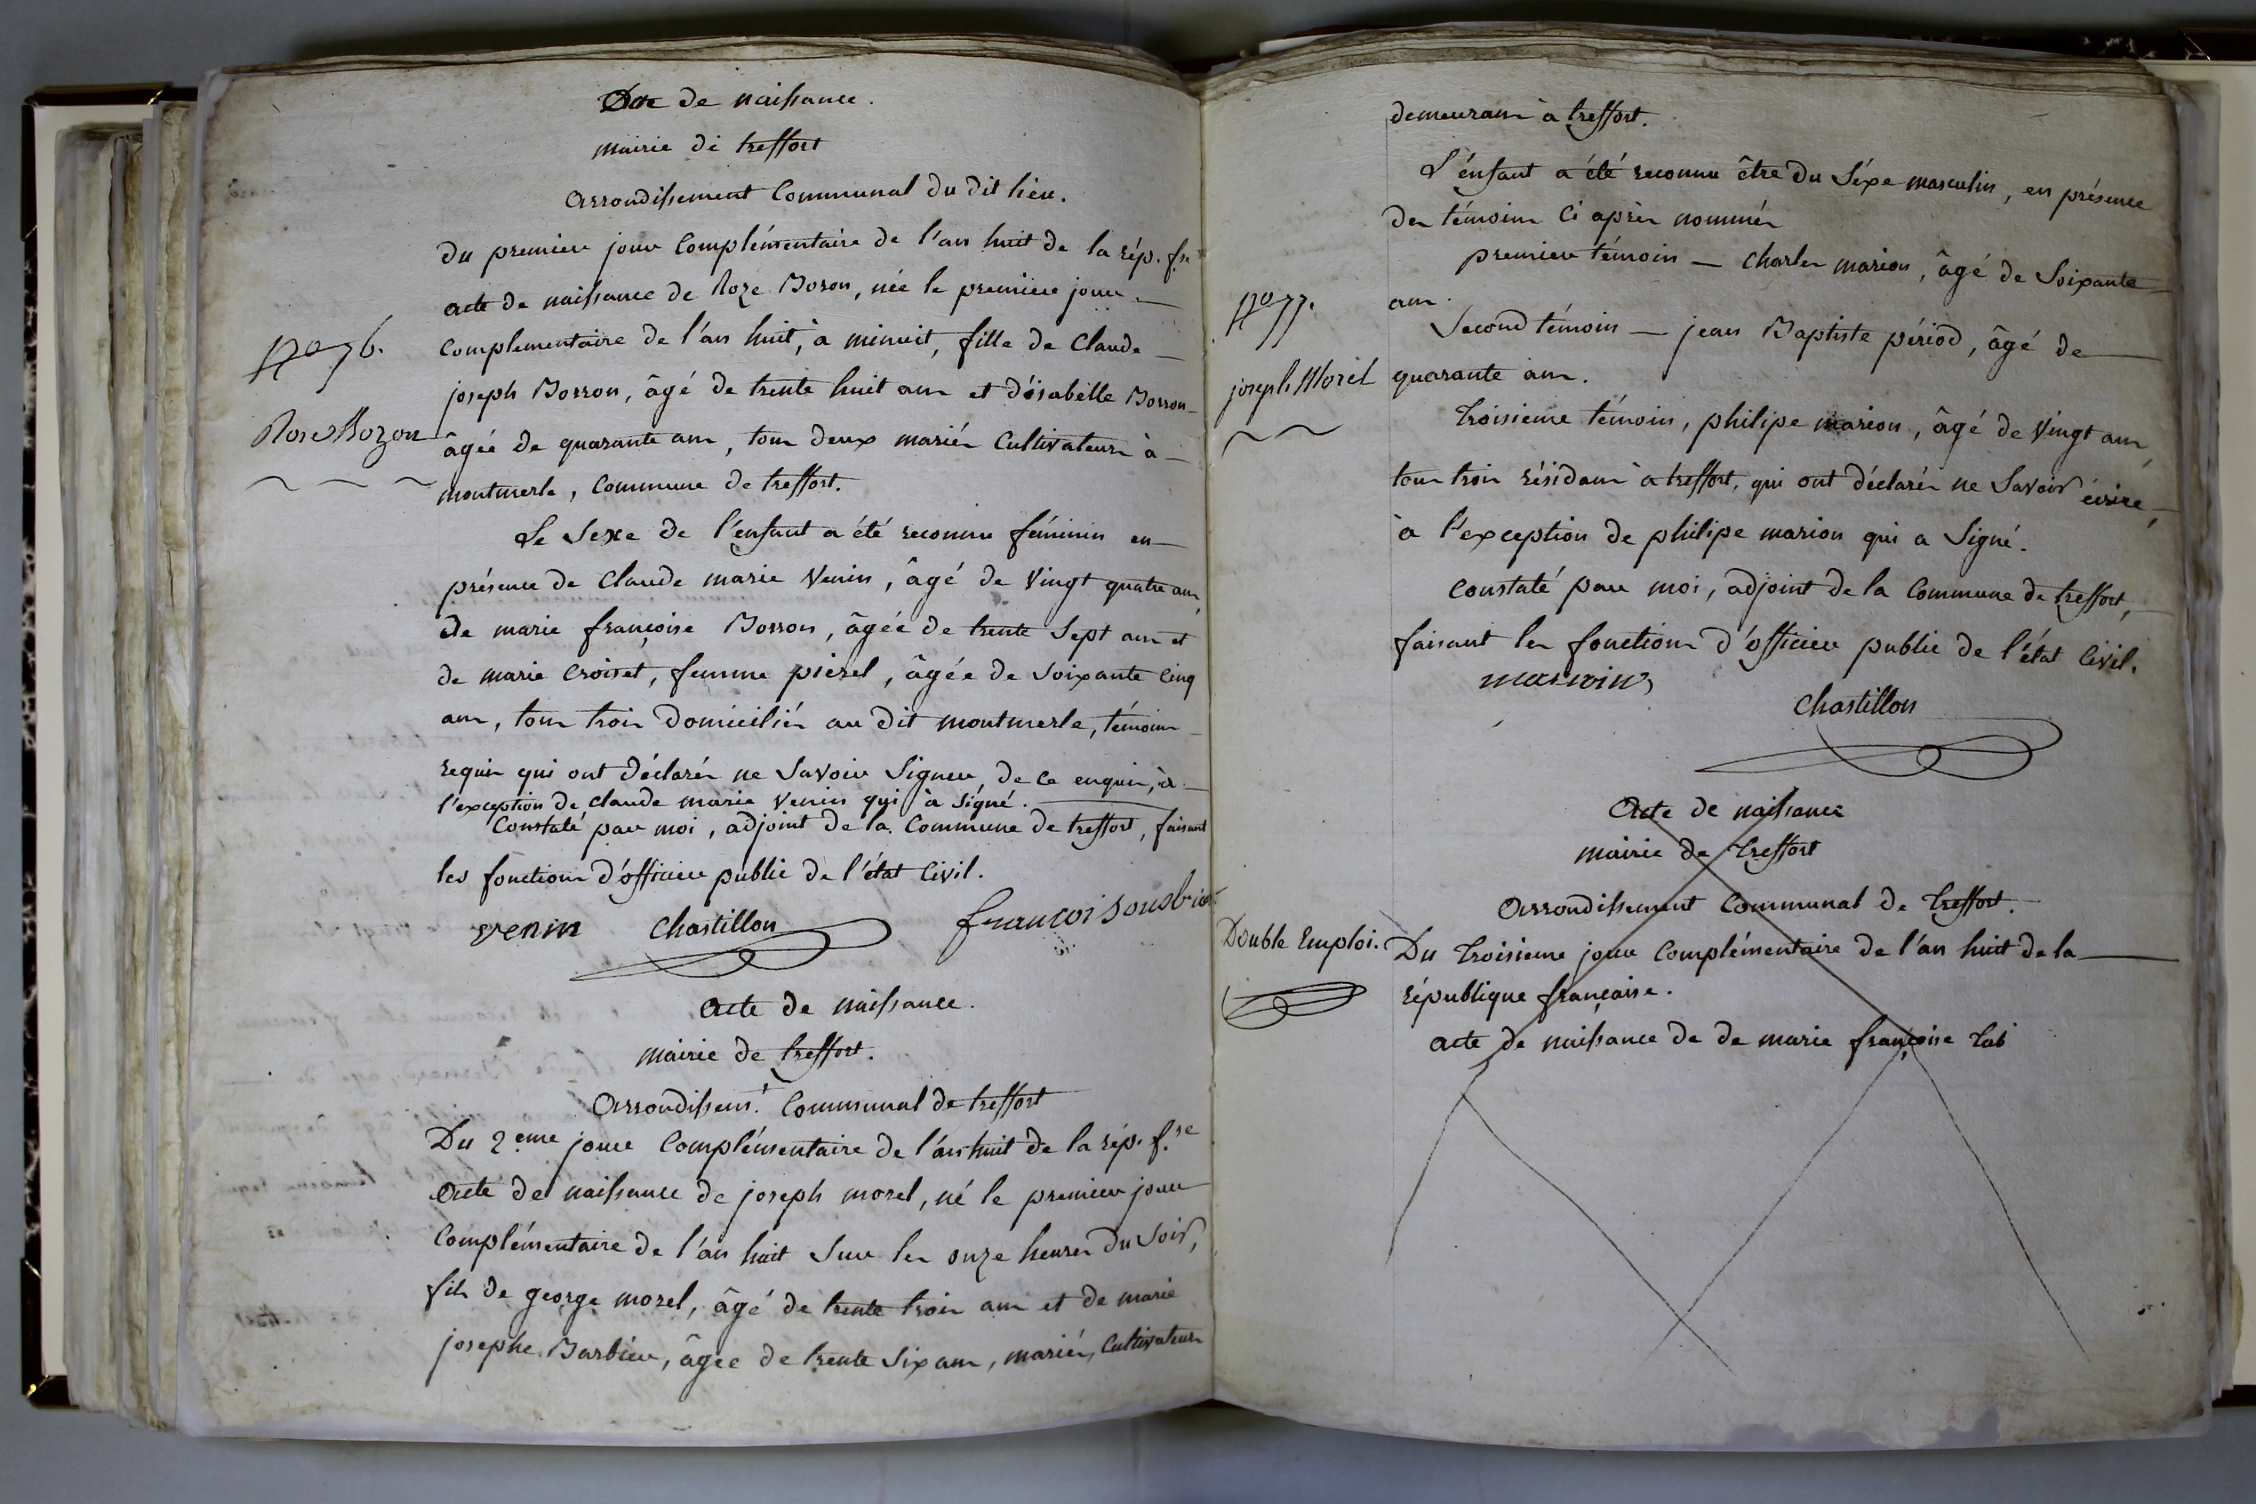 Acte de naissance.
mairie de treffort
arrondissement Communal du dit lieu.
du premier jour Complémentaire de l'an huit de la rép. fse
acte de naissance de Roze Boron, née le premiere jour
N° 76.
complementaire de l'an huit, à minuit, fille de Claude
joseph Borron, âgé de trente huit ans et d'isabelle Borron
Rose Bozon
âgée de quarante ans, tous deux mariés Cultivateurs à
montmerle, Commune de treffort.
Le Sexe de l'enfant a été reconnu féminin en
présence de Claude marie Venin, âgé de Vingt quatre ans,
de marie françoise Borron, âgée de trente Sept ans et
de marie Croiset, femme piérel, âgée de soixante Cinq
ans, tous trois Domiciliés au dit montmerle, témoins
requis qui ont déclarés ne Savoir Signer, de ce enquis, à
l'exception de claude marie Venin qui à Signé.
Constaté par moi, adjoint de la Commune de treffort, faisant
les fonctions d'officier public de l'état Civil.
venin Chastillon francoi
acte de naissance.
mairie de treffort.
Arrondissemt. Communal de treffort
Du 2eme jour Complémentaire de l'an huit de la rép. fse
Acte de naissance de joseph morel, né le premier jour
Complémentaire de l'an huit Sur les onze heures du Soir,
fils de george morel, âgé de trente trois ans et de marie
josephe Barbier, âgée de trente Six ans, mariés, Cultivateurs
demeurans à treffort.
L'énfant a été reconnu être du Séxe masculin, en présence
des témoins Ci après nommés
premier témoin — Charles marion, âgé de Soixante
N° 77.
ans.
Second témoin — jean Baptiste périod, âgé de
joseph Morel
quarante ans.
troisieme témoin, philipe marion, âgé de Vingt ans,
tous trois résidans à treffort, qui ont déclarés ne Savoir écrire,
à l'exception de philipe marion qui a Signé.
Constaté par moi, adjoint de la Commune de treffort,
faisant les fonctions d'officier public de l'état Civil.
marion
Chastillon
Acte de naissance
mairie de treffort
Arrondissement Communal de treffort.
Double Emploi.
Du troisieme jour Complémentaire de l'an huit de la
république française.
acte de naissance de de marie françoise